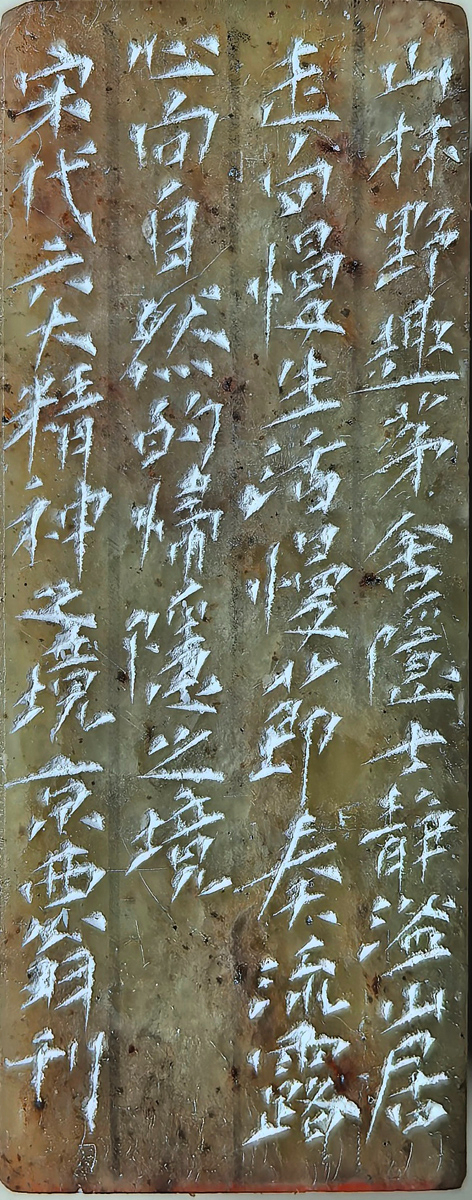 山林野趣茅舍隐士静溢山居
走向慢生活慢节奏流露
心向自然的情隱之境
宋代六大精神之境京西翁刊